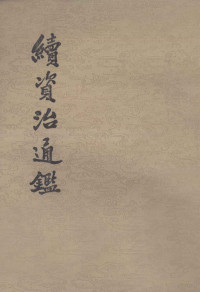 續資治通鑑